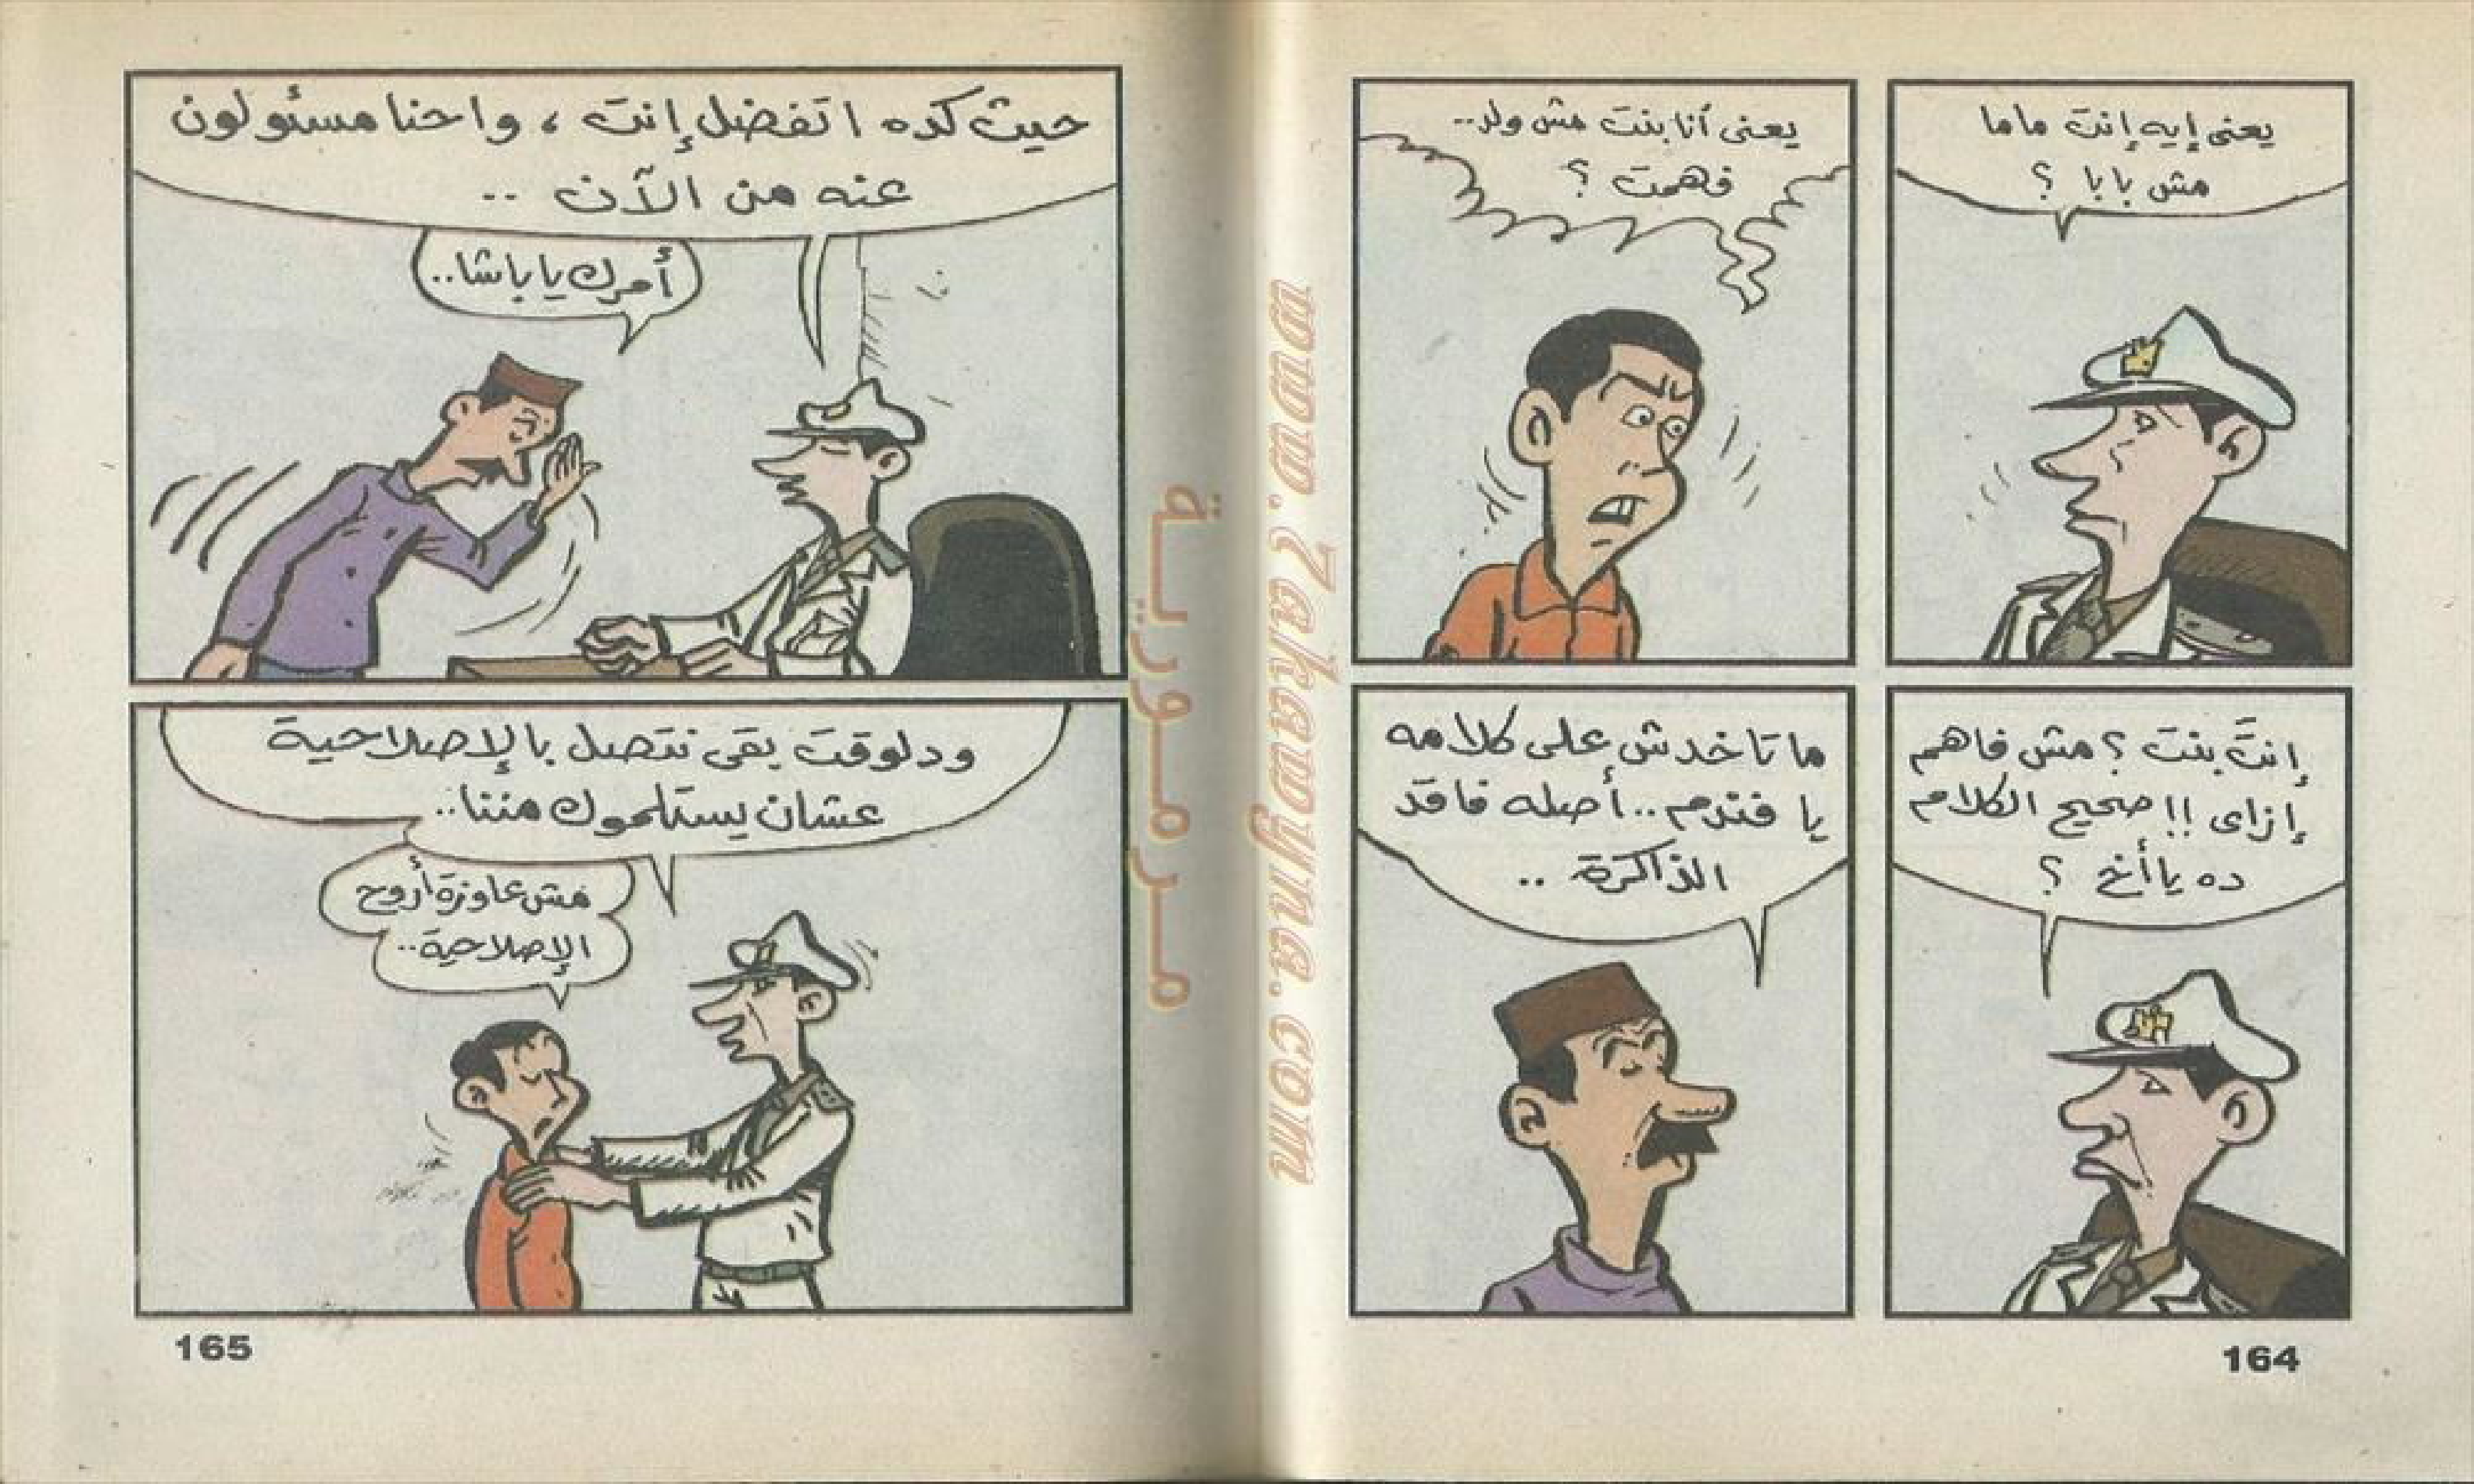 يعنى إيه إنت ماما
مش بابا ؟
يعنى أنا بنت مش ولد..
فهمت ؟
إنتَ بنت ؟ مش فاهم
إزاى !! صحيح الكلام
ده يا أخ ؟
ما تاخدش على كلامه
يا فندم.. أصله فاقد
الذاكرة ..
164
حيث كده اتفضل إنت ، واحنا مسئولون
عنه من الآن ..
أمرك يا باشا..
ودلوقت بقى نتصل بالإصلاحية
عشان يستلموك مننا..
مش عاوزة أروح
الإصلاحية..
165
مرمورية
www.7akawyna.com